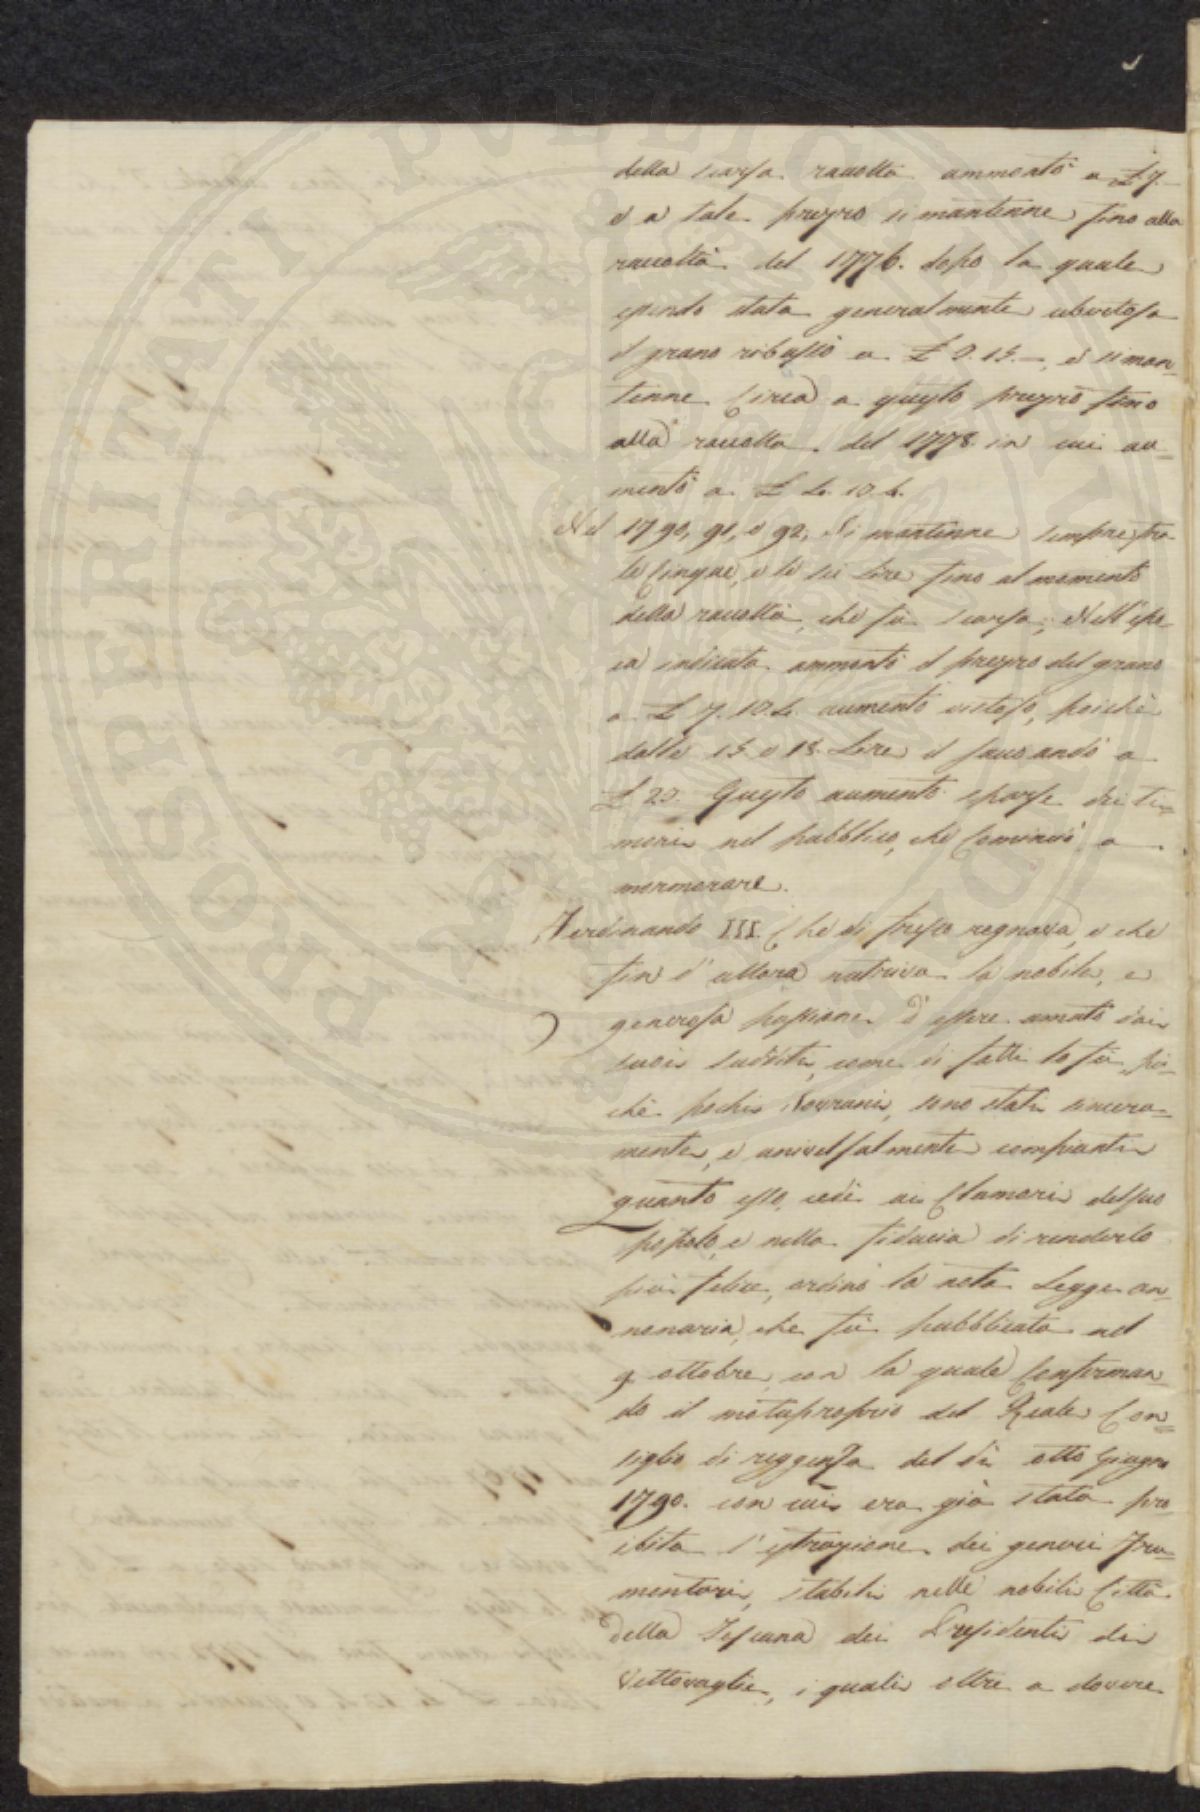 della scarsa raccolta ammontò a £ 7.—
e a tale prezzo si mantenne fino alla
raccolta del 1776. dopo la quale
essendo stata generalmente ubertosa
il grano ribassò a £ 5. 15.—, e si man=
tenne Circa a questo prezzo fino
alla raccolta del 1778. in cui au=
mentò a £ 6. 10. 4.
Nel 1790, 91, e 92, Si mantenne sempre fra
le Cinque, e le sei Lire fino al momento
della raccolta, che fù scarsa; Nell'epo=
ca indicata ammontò il prezzo del grano
a £ 7. 10. 4. aumento vistoso, poichè
dalle 15 e 18. Lire il sacco andò a
£ 20. Questo aumento sparse dei ti=
mori nel pubblico, che Cominciò a
mormorare.
Ferdinando III. Che di fresco regnava, e che
fin d'allora nutriva la nobile, e
generosa passione d'essere amato dai
suoi sudditi, come di fatti lo fù, poi=
chè pochi Sovrani, sono stati sincera=
mente, e universalmente compianti
quanto esso, cedè ai Clamori del suo
popolo, e nella fiducia di renderlo
più felice, ordinò la nota Legge an=
nonaria, che fù pubblicata nel
9 ottobre, con la quale Conferman=
do il motuproprio del Reale Con=
siglio di reggenza del dì otto Giugno
1790. con cui era già stata pro
ibita l'estrazione dei generi Fru=
mentari, stabilì nelle nobili Città
della Toscana dei Presidenti di
Vettovaglie, i quali oltre a dovere
PROSPERITATI PVBLICAE